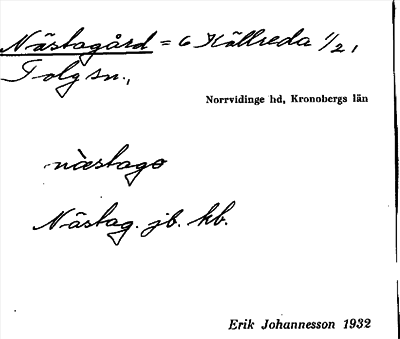 Nästagård = 6 Källreda 1/2,
Tolg sn.,
Norrvidinge hd, Kronobergs län
nàstago
Nästag. jb. kb.
Erik Johannesson 1932